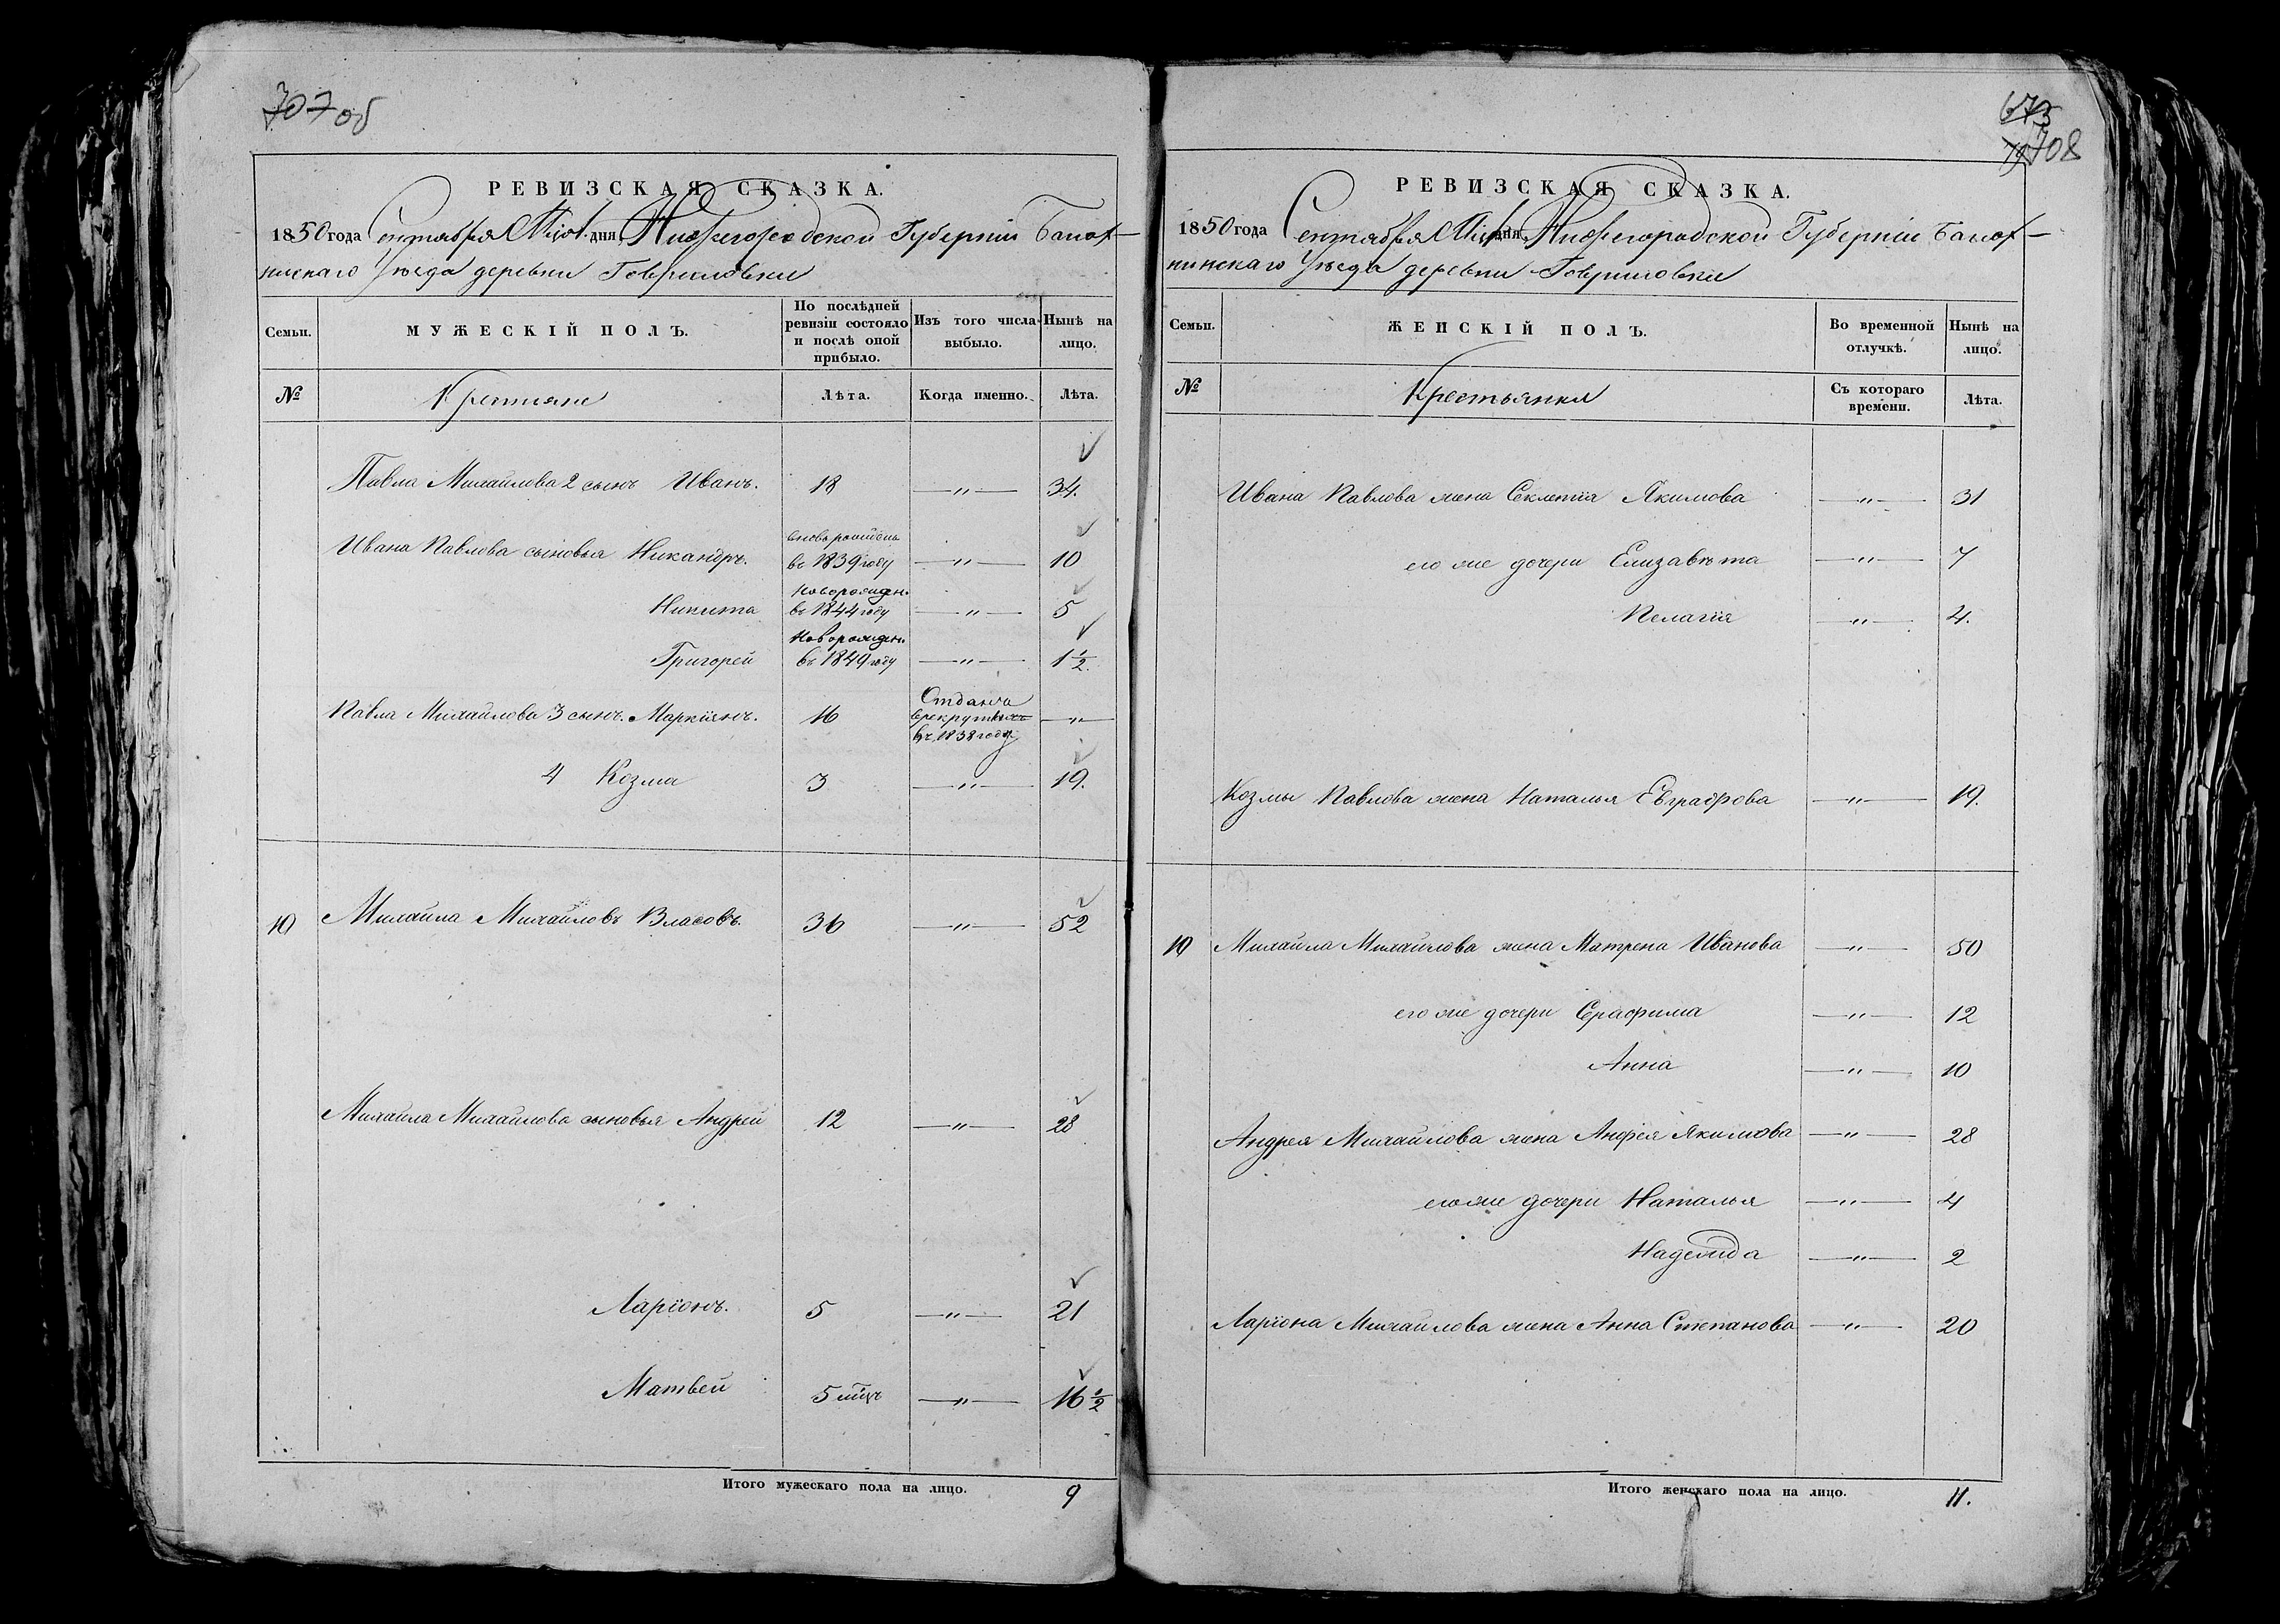 707 об
РЕВИЗСКАЯ СКАЗКА.
1850 года Сентября дня Нижегородской Губерніи Балах-
нискаго Уѣзда деревни Гавриловки
Семьи.
МУЖЕСКІЙ ПОЛЪ.
По послѣдней ревизіи состояло и послѣ оной прибыло.
Изъ того числа выбыло.
Нынѣ на лицо.
№
Крестьяне
Лѣта.
Когда именно.
Лѣта.
Павла Михайлова 2 сынъ Иванъ. 18 —"— 34.
Ивана Павлова сыновья Никандръ. вновь рожденъ въ 1839 году —"— 10
Никита новорожден. въ 1844 году —"— 5
Григорей новорожден. въ 1849 году —"— 1 1/2.
Павла Михайлова 3 сынъ. Маркіянъ. 16 Отданъ в рекруты въ 1838 году —"—
4 Козма 3 —"— 19.
10 Михайла Михайловъ Власовъ. 36 —"— 52
Михайла Михайлова сыновья Андрей 12 —"— 28
Ларіонъ. 5 —"— 21
Матвей 5 мцъ —"— 16 1/2
Итого мужескаго пола на лицо. 9
673
708
РЕВИЗСКАЯ СКАЗКА.
1850 года Сентября дня Нижегородской Губерніи Балах-
нинскаго Уѣзда деревни Гавриловки
Семьи.
ЖЕНСКІЙ ПОЛЪ.
Во временной отлучкѣ.
Нынѣ на лицо.
№
Крестьянки
Съ котораго времени.
Лѣта.
Ивана Павлова жена Секлетія Якимова —"— 31
его же дочери Елизавѣта —"— 7
Пелагія —"— 4.
Козмы Павлова жена Наталья Евграфова —"— 19.
10 Михайла Михайлова жена Матрена Иванова —"— 50
его же дочери Серафима —"— 12
Анна —"— 10
Андрея Михайлова жена Анфея Якимова —"— 28
его же дочери Наталья —"— 4
Надежда —"— 2
Ларіона Михайлова жена Анна Степанова —"— 20
Итого женскаго пола на лицо. 11.